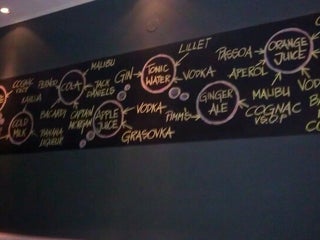 COGNAC
KAHLUA
COLD
MILK
BACARDI
BANANA
LIQUEUR
COLA
MALIBU
JACK
DANIELS
CAPTAIN
MORGAN
APPLE
JUICE
VODKA
GRASOVKA
GIN
TONIC
WATER
LILLET
VODKA
PIMMS
GINGER
ALE
MALIBU
COGNAC
V.S.O.P
PASSOA
APEROL
ORANGE
JUICE